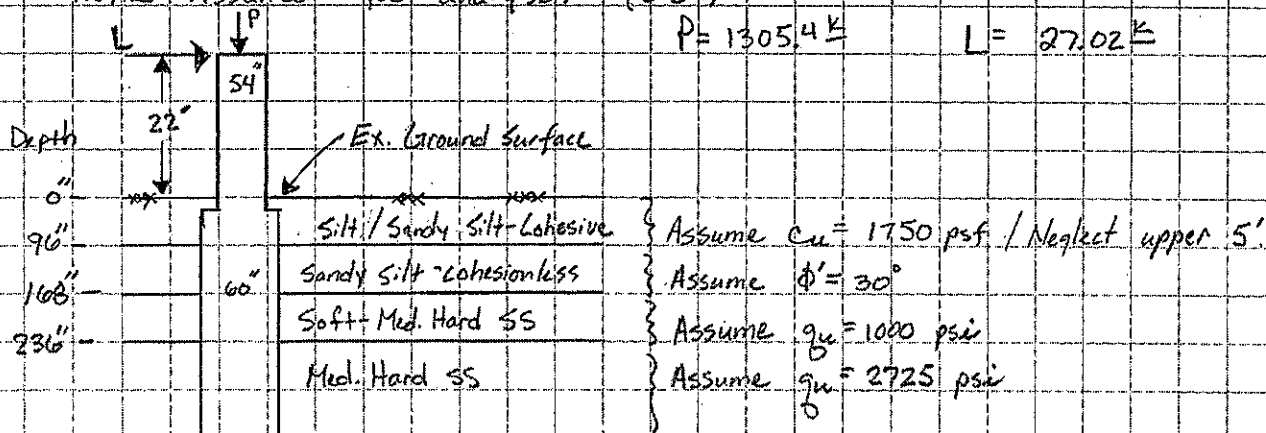 P = 1305.4 K
L = 27.02 K
L
P
54"
22'
Depth
Ex. Ground Surface
0"
Silt / Sandy Silt - Cohesive
Assume Cu = 1750 psf / Neglect upper 5'.
96"
Sandy Silt - Cohesionless
Assume ϕ' = 30°
60"
168"
Soft - Med. Hard SS
Assume qu = 1000 psi
236"
Med. Hard SS
Assume qu = 2725 psi